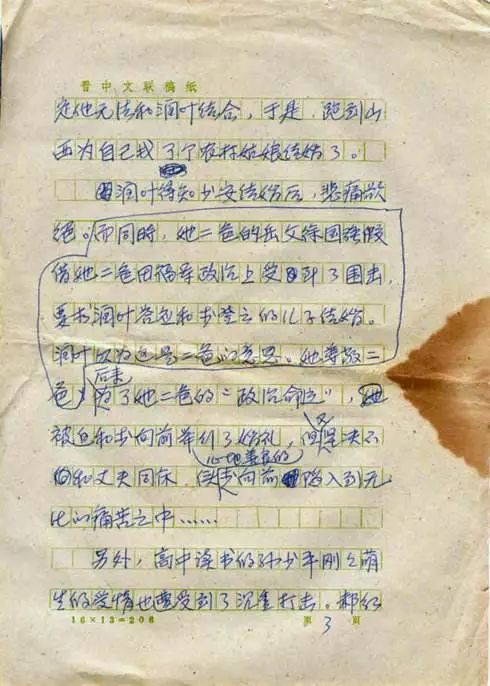 晋中文联稿纸
定他无法和润叶结合，于是，跑到山
西为自己找了个农村姑娘结婚了。
润叶得知少安结婚后，悲痛欲
绝。而同时，她二爸的岳父徐国强假
借她二爸田福军政治上受到了围击，
要求润叶答应和李登云的儿子结婚。
润叶以为这是二爸的意思。她尊敬二
爸，后来为了她二爸的“政治命运”，
被迫和李向前举行了婚礼，但又坚决不
和丈夫同床，使心地善良的李向前陷入到无
比的痛苦之中……
另外，高中读书的孙少平刚刚萌
生的爱情也遭受到了沉重打击。郝红
16×13=208 第 3 页